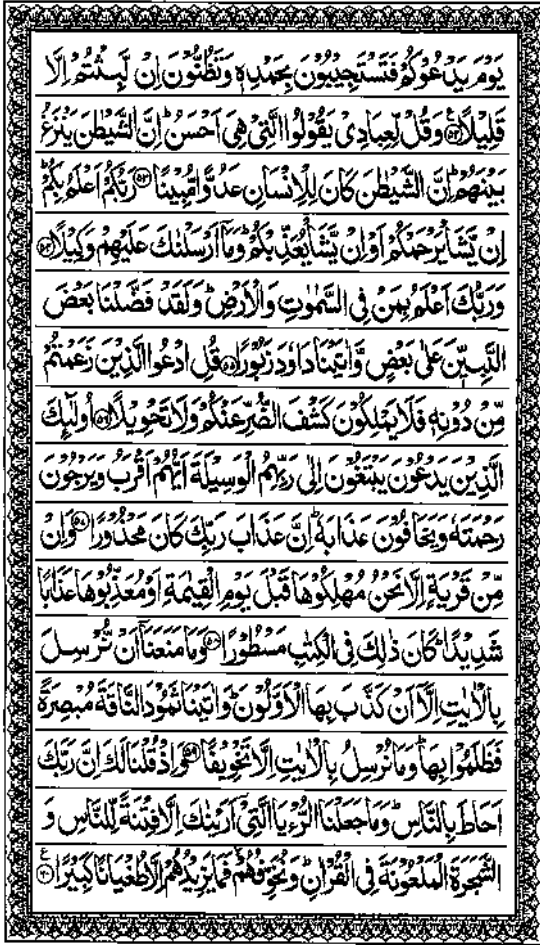 يَوْمَ يَدْعُوْكُمْ فَتَسْتَجِيْبُوْنَ بِحَمْدِهٖ وَتَظُنُّوْنَ اِنْ لَّبِثْتُمْ اِلَّا
قَلِيْلًا ﴿۵۲﴾ وَقُلْ لِّعِبَادِيْ يَقُوْلُوا الَّتِيْ هِيَ اَحْسَنُ ؕ اِنَّ الشَّيْطٰنَ يَنْزَغُ
بَيْنَهُمْ ؕ اِنَّ الشَّيْطٰنَ كَانَ لِلْاِنْسَانِ عَدُوًّا مُّبِيْنًا ﴿۵۳﴾ رَبُّكُمْ اَعْلَمُ بِكُمْ ؕ
اِنْ يَّشَاْ يَرْحَمْكُمْ اَوْ اِنْ يَّشَاْ يُعَذِّبْكُمْ ؕ وَمَاۤ اَرْسَلْنٰكَ عَلَيْهِمْ وَكِيْلًا ﴿۵۴﴾
وَرَبُّكَ اَعْلَمُ بِمَنْ فِي السَّمٰوٰتِ وَالْاَرْضِ ؕ وَلَقَدْ فَضَّلْنَا بَعْضَ
النَّبِيّٖنَ عَلٰى بَعْضٍ وَّاٰتَيْنَا دَاوٗدَ زَبُوْرًا ﴿۵۵﴾ قُلِ ادْعُوا الَّذِيْنَ زَعَمْتُمْ
مِّنْ دُوْنِهٖ فَلَا يَمْلِكُوْنَ كَشْفَ الضُّرِّ عَنْكُمْ وَلَا تَحْوِيْلًا ﴿۵۶﴾ اُولٰٓئِكَ
الَّذِيْنَ يَدْعُوْنَ يَبْتَغُوْنَ اِلٰى رَبِّهِمُ الْوَسِيْلَةَ اَيُّهُمْ اَقْرَبُ وَيَرْجُوْنَ
رَحْمَتَهٗ وَيَخَافُوْنَ عَذَابَهٗ ؕ اِنَّ عَذَابَ رَبِّكَ كَانَ مَحْذُوْرًا ﴿۵۷﴾ وَاِنْ
مِّنْ قَرْيَةٍ اِلَّا نَحْنُ مُهْلِكُوْهَا قَبْلَ يَوْمِ الْقِيٰمَةِ اَوْ مُعَذِّبُوْهَا عَذَابًا
شَدِيْدًا ؕ كَانَ ذٰلِكَ فِي الْكِتٰبِ مَسْطُوْرًا ﴿۵۸﴾ وَمَا مَنَعَنَاۤ اَنْ نُّرْسِلَ
بِالْاٰيٰتِ اِلَّاۤ اَنْ كَذَّبَ بِهَا الْاَوَّلُوْنَ ؕ وَاٰتَيْنَا ثَمُوْدَ النَّاقَةَ مُبْصِرَةً
فَظَلَمُوْا بِهَا ؕ وَمَا نُرْسِلُ بِالْاٰيٰتِ اِلَّا تَخْوِيْفًا ﴿۵۹﴾ وَاِذْ قُلْنَا لَكَ اِنَّ رَبَّكَ
اَحَاطَ بِالنَّاسِ ؕ وَمَا جَعَلْنَا الرُّءْيَا الَّتِيْۤ اَرَيْنٰكَ اِلَّا فِتْنَةً لِّلنَّاسِ وَ
الشَّجَرَةَ الْمَلْعُوْنَةَ فِي الْقُرْاٰنِ ؕ وَنُخَوِّفُهُمْ ۙ فَمَا يَزِيْدُهُمْ اِلَّا طُغْيَانًا كَبِيْرًا ﴿۶۰﴾